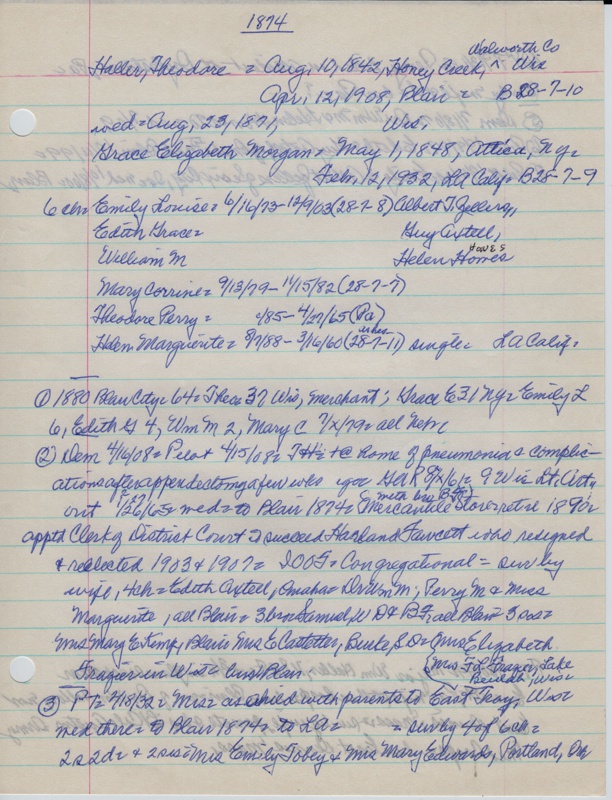 1874
Walworth Co
Haller, Theodore = Aug, 10, 1842, Honey Creek, ^ Wis
Apr, 12, 1908, Blair = B28-7-10
wed = Aug, 23, 1871, Wis,
Grace Elizabeth Morgan = May 1, 1848, Attica, Ny =
Febr, 12, 1932, LA Calif = B28-7-9
6 ch = Emily Louise = 6/16/73-12/9/03 (28-7-8) Albert T Zellers,
Edith Grace = Guy Axtell,
HOWES
William M Helen T Homes
Mary Corrine = 9/13/79 - 11/15/82 (28-7-7)
Theodore Perry = /85 - 4/27/65 (Pa)
ashes
Helen Marguerite = 8/7/88 - 3/16/60 (28-7-11) single = LA Calif =
① 1880 Blair City = 64 = Theo = 37 Wis, merchant; Grace E 31 Ny = Emily L
6, Edith G 4, Wm M 2, Mary C 7/x/79 = all Nebr
② Dem 4/16/08 = Pilot 4/15/08 = TH = @ home of pneumonia & complic-
ations after appendectomy a few wks ago GAR 8/x/61 = 9 Wis Lt. Arty
out 1/26/65 = wed = to Blair 1874 = Mercantile Store = retire 1890s
apptd Clerk of District Court to succeed Harland Fawcett who resigned
& reelected 1903 & 1907 = IOOF = Congregational = surv by
wife, 4 ch = Edith Axtell, Omaha = Dr Wm M; Perry M & Miss
Marguerite, all Blair = 3 bro = Samuel, W D & B F, all Blair = 3 sis =
Mrs Mary E Kemp, Blair, Mrs E Castetter, Burke, SD = & Mrs Elizabeth
Frazier in Wis = bur Blair
(Mrs Frazier, Lake Beulah, Wis)
③ PT = 4/18/32 = Mrs = as child with parents to East Troy, Wis
wed there = to Blair 1874 = to LA = = surv by 4 of 6 ch =
2 s 2 d = & 2 sis = Mrs Emily Tobey & Mrs Mary Edwards, Portland, Or